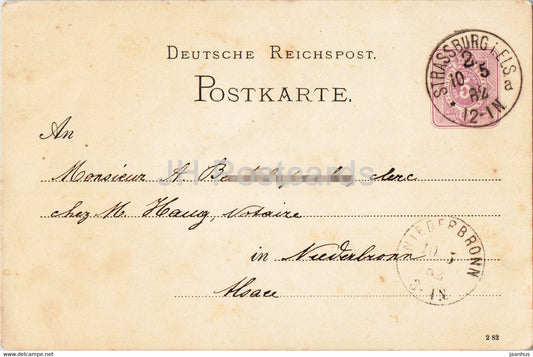 DEUTSCHE REICHSPOST.
POSTKARTE.
STRASSBURG i. ELS
2 5
10 82
12-1N.
a
An
Monsieur A clerc
chez M. Haug, Notaire
in Niederbronn
Alsace
NIEDERBRONN
10 5
82
1N.
2 82
JH Postcards
www.delcampe.net
jaanhus